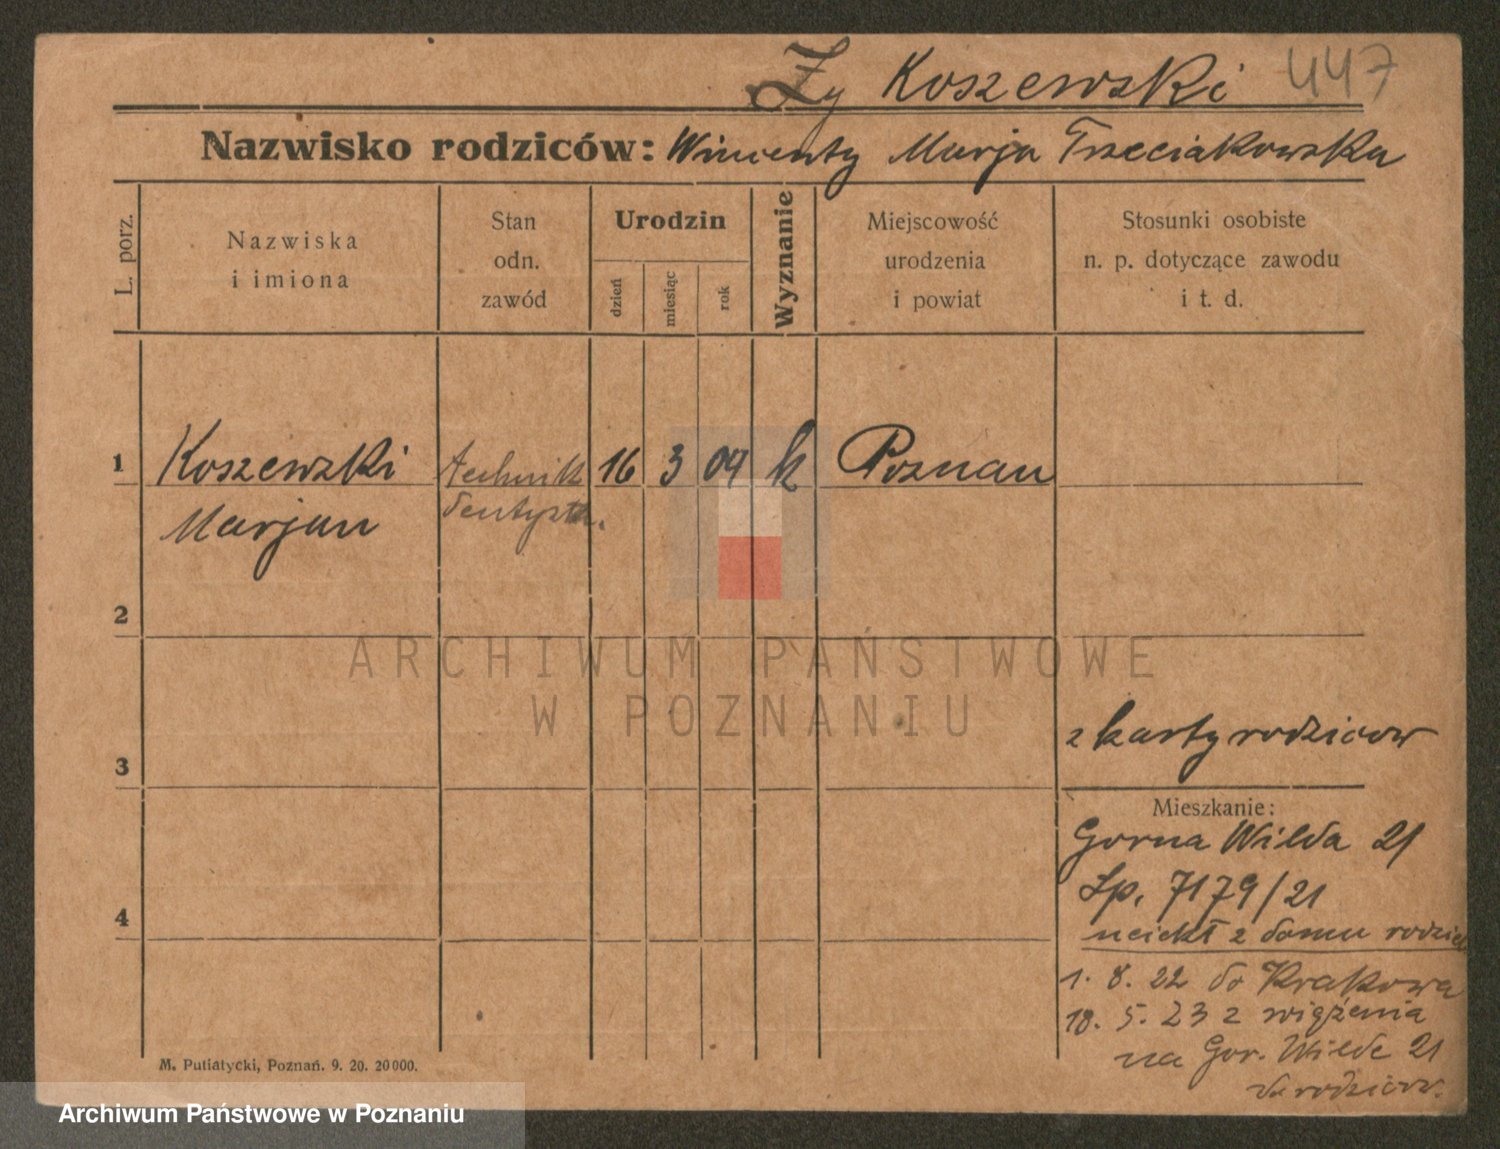 Koszewski 447
Nazwisko rodziców: Wincenty Marja Trzeciakowska
L. porz.
Nazwiska
i imiona
Stan
odn.
zawód
Urodzin
dzień
miesiąc
rok
Wyznanie
Miejscowość
urodzenia
i powiat
Stosunki osobiste
n. p. dotyczące zawodu
i t. d.
1 Koszewski technik 16 3 04 k Poznan
Marjan dentyst.
2
ARCHIWUM PAŃSTWOWE
W POZNANIU
z karty rodzicow
3
Mieszkanie:
Gorna Wilda 21
Lp. 7179/21
4
uciekł z domu rodzic
1. 8. 22 do Krakowa
18. 5. 23 z więzenia
na Gor. Wilde 21
do rodzicow.
M. Putiatycki, Poznań. 9. 20. 20000.
Archiwum Państwowe w Poznaniu